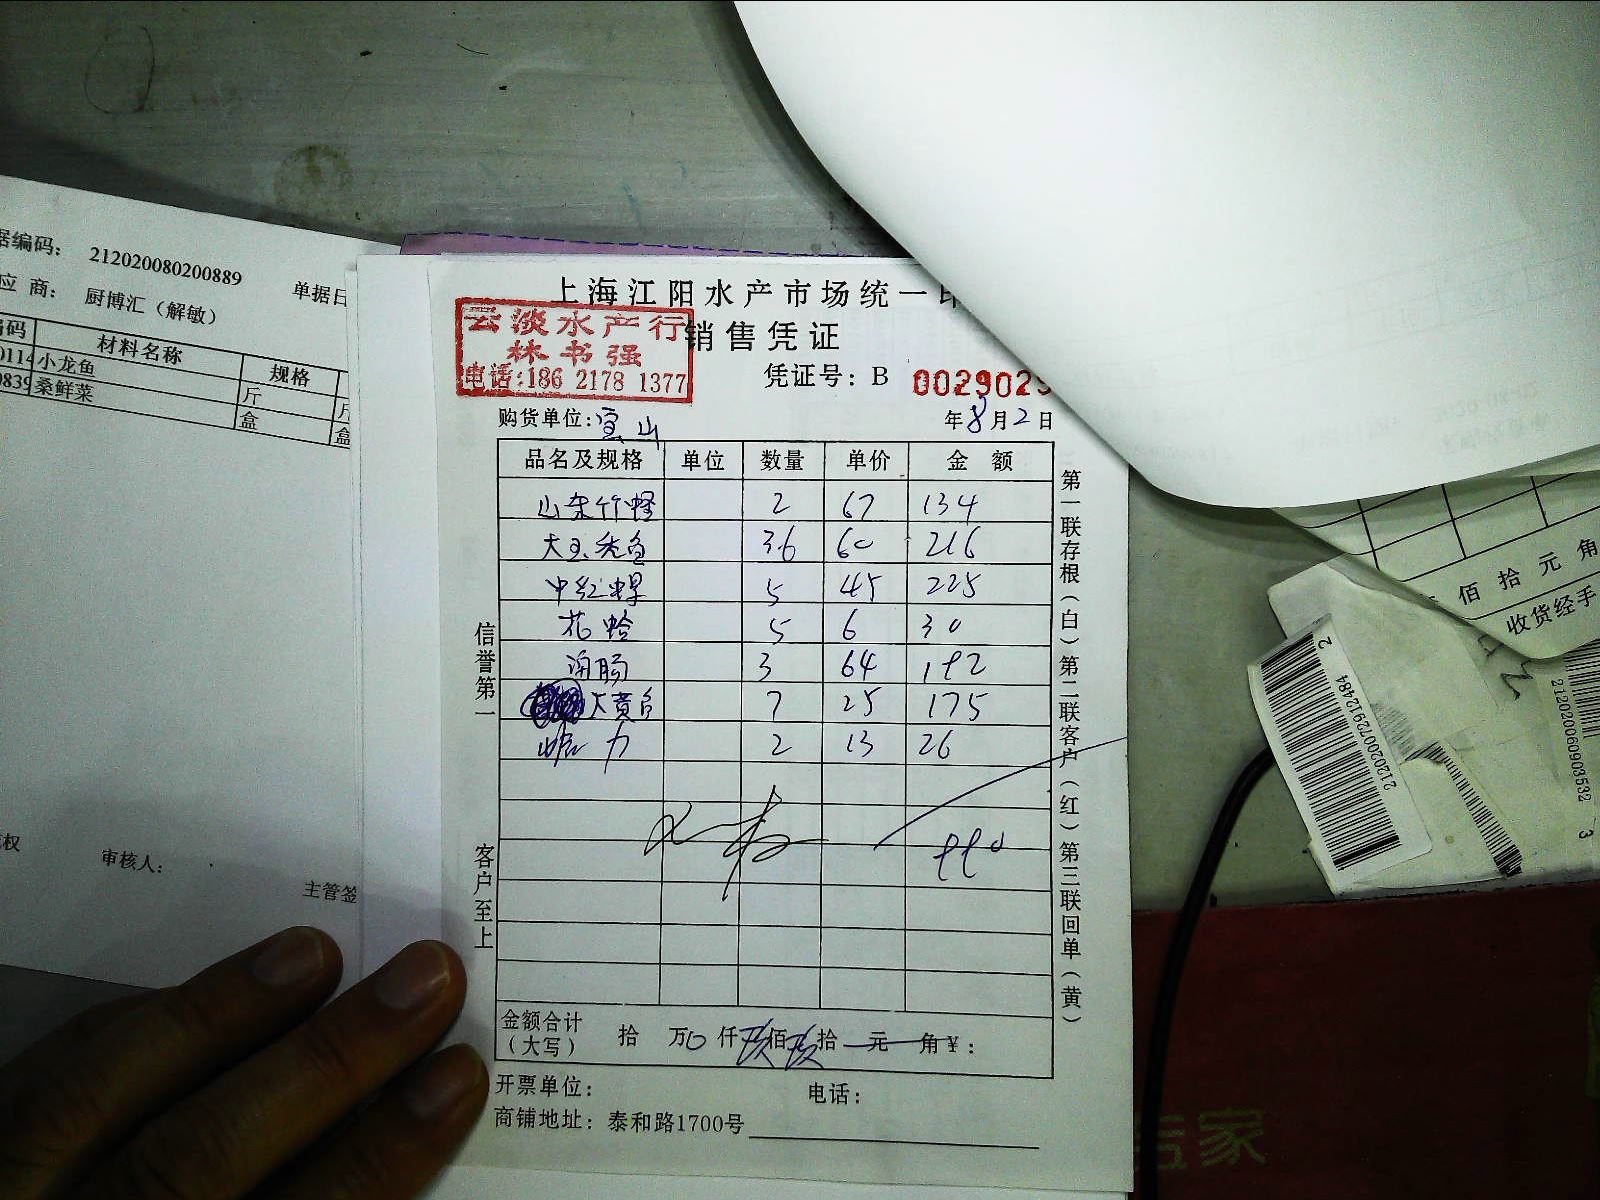 据编码： 212020080200889 单据日
应 商： 厨博汇（解敏）
编码 材料名称 规格
0114 小龙鱼 斤 斤
0839 桑鲜菜 盒 盒
权 审核人：
主管签
上海江阳水产市场统一印
销售凭证
云淡水产行
林书强
电话:186 2178 1377
凭证号：B 0029029
购货单位:宝山 年8月2日
品名及规格 单位 数量 单价 金 额
山东竹蛏 2 67 134
36 60 216
中红虾 5 45 225
花蛤 5 6 30
海肠 3 64 192
大黄鱼 7 25 175
2 13 26
990
金额合计
（大写） 拾 万0仟玖佰玖拾 元 角￥：
开票单位： 电话：
商铺地址：泰和路1700号
信誉第一
客户至上
第一联存根（白）第二联客户（红）第三联回单（黄）
佰 拾 元 角
收货经手
212020072912484
2
212020060903532
3